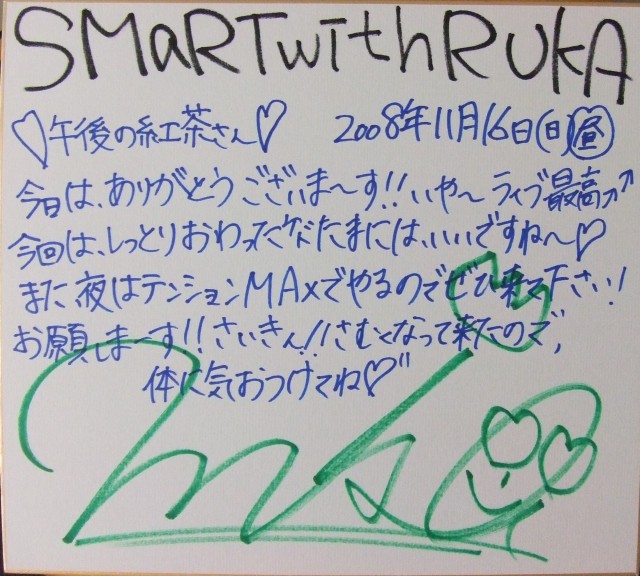 SMaRTwithRUkA
♡午後の紅茶さん♡ 2008年11月16日(日)昼
今日は、ありがとうございま〜す!!いや〜ライブ最高↗↗
今回は、しっとりおわったケドたまには、いいですね〜♡
また夜はテンションMAxでやるのでぜひ来て下さい!
お願しま〜す!!さいきん!!さむくなって来たので、
体に気おつけてね♡"